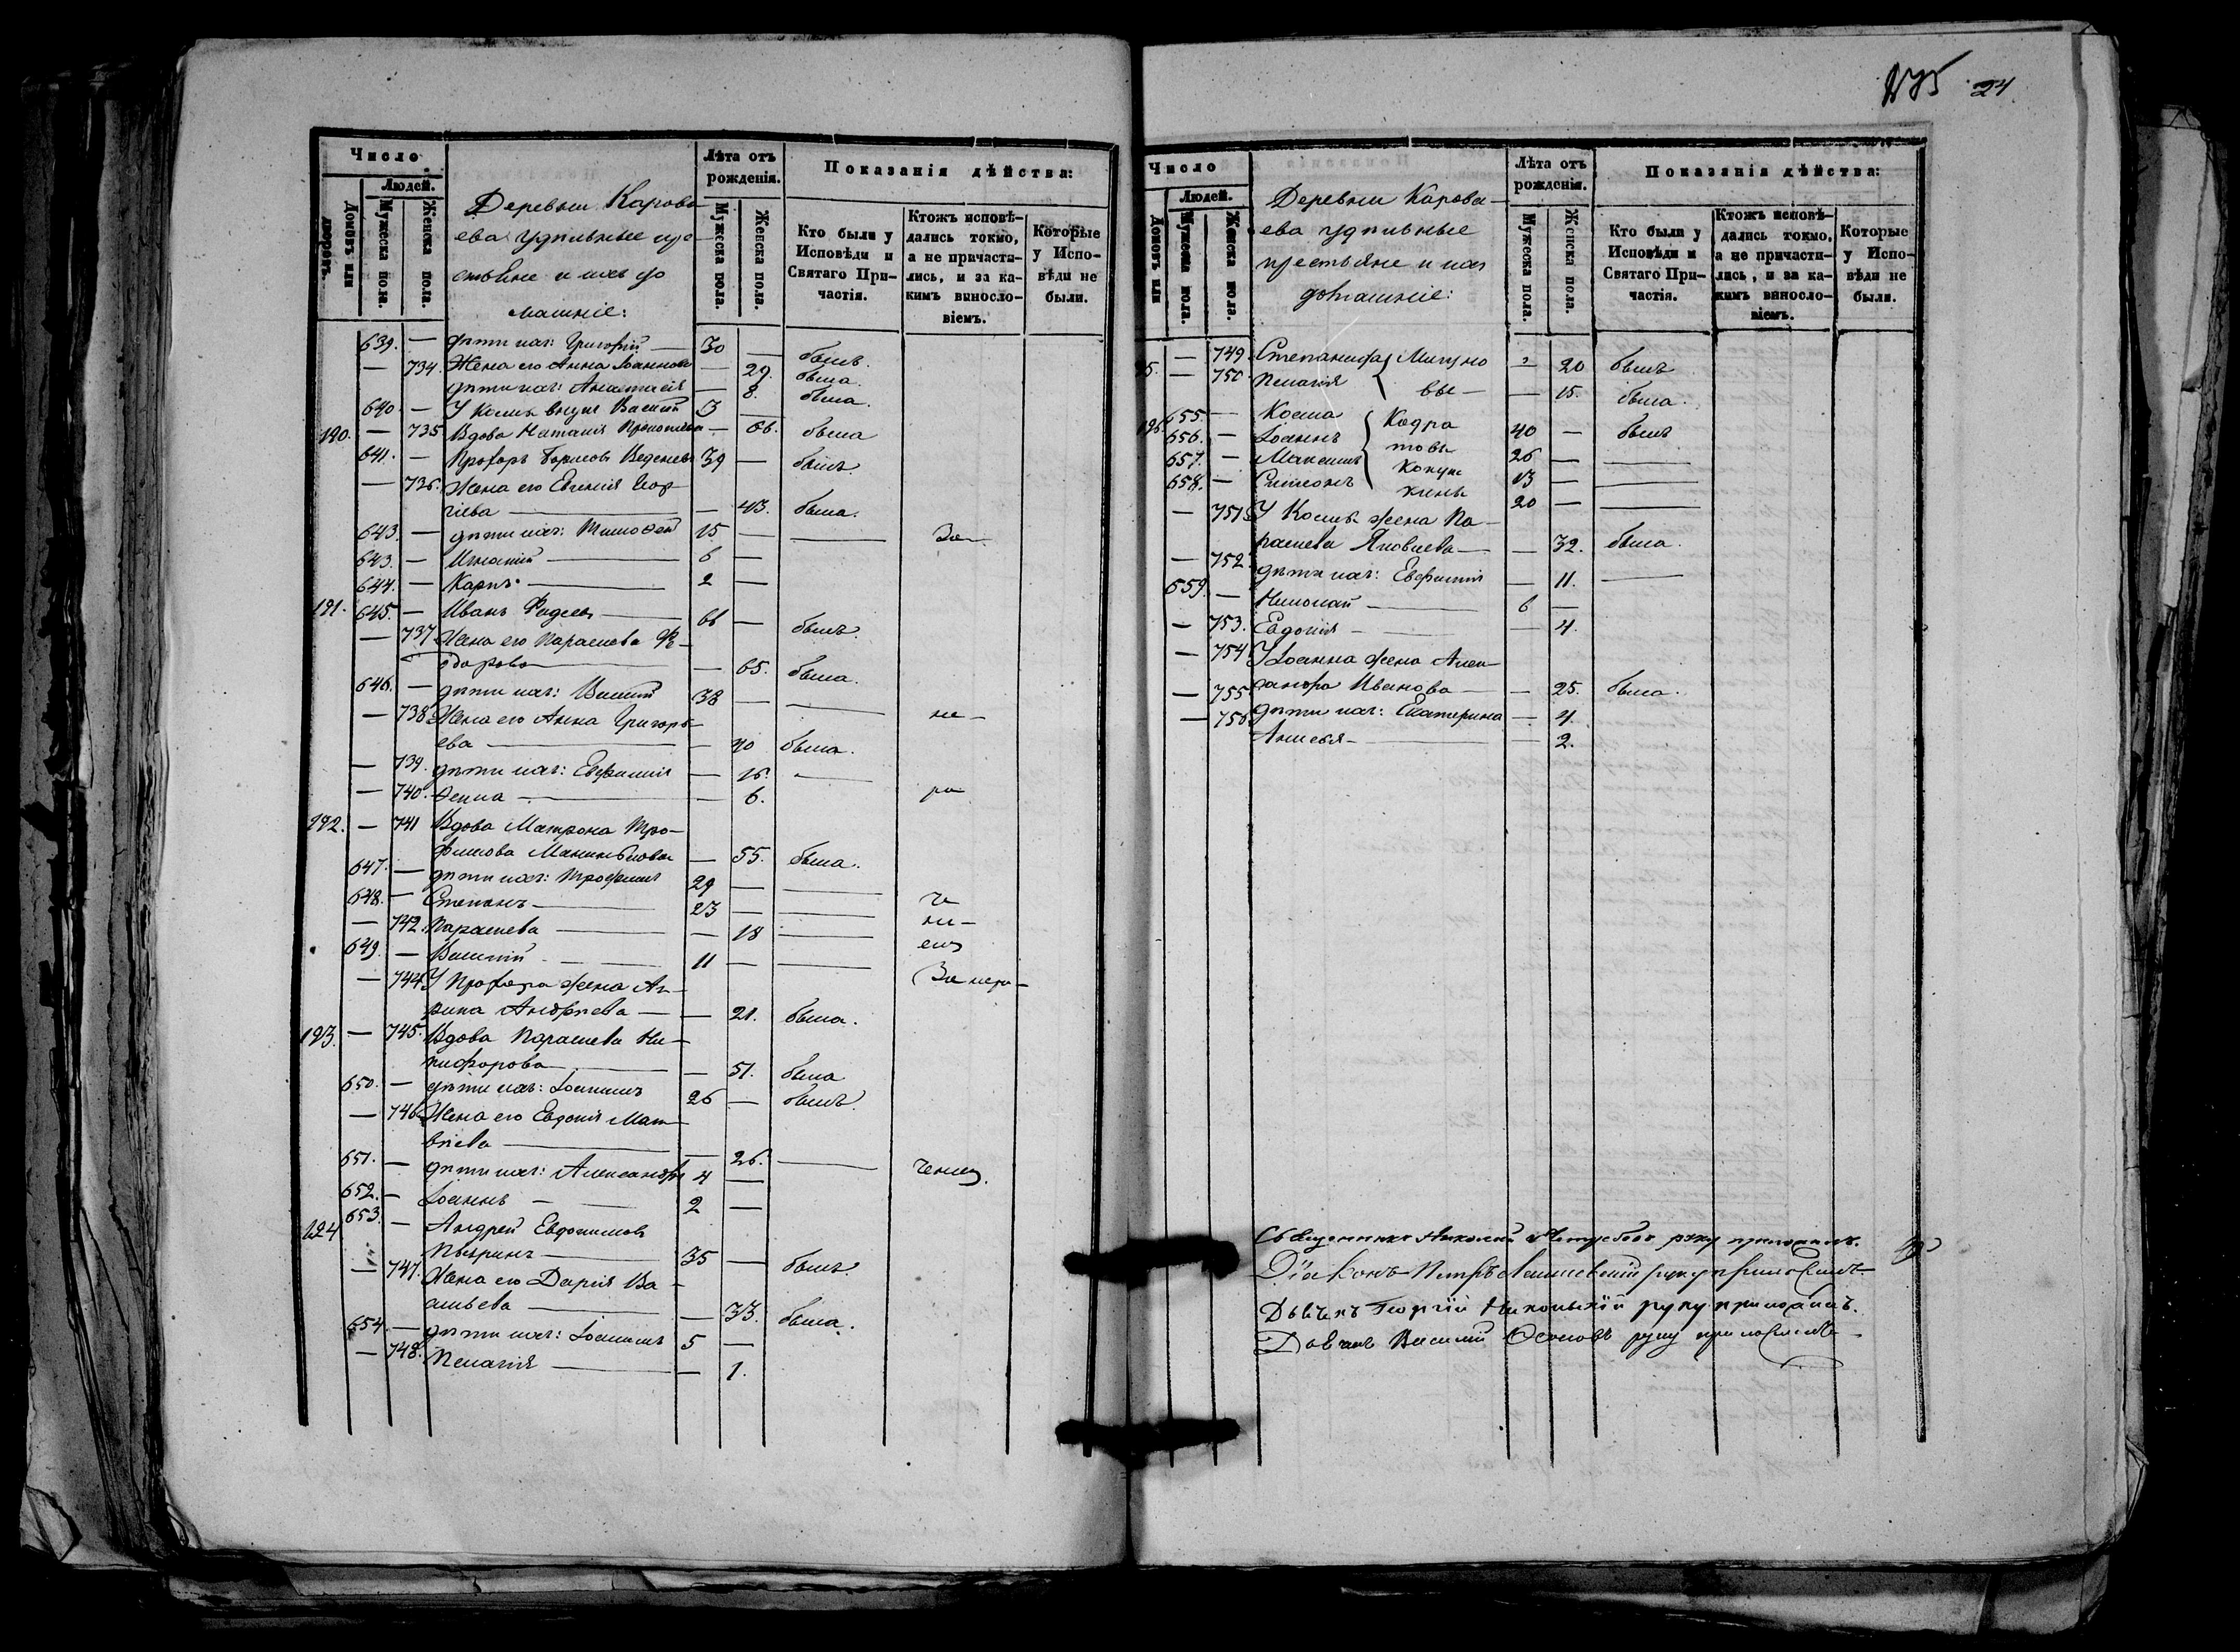 24
Число
Людей.
Домовъ или дворовъ.
Мужеска пола.
Женска пола.
Деревни Карова-
ева удѣльные кре-
стьяне и ихъ до
машніе:
Лѣта отъ рожденія.
Мужеска пола.
Женска пола.
Показанія дѣйства:
Кто были у Исповѣди и Святаго При-частія.
Ктожъ исповѣ-дались токмо, а не причасти-лись, и за ка-кимъ винослo-віемъ.
Которые у Испо-вѣди не были.
639. — дѣти ихъ: Григорій — 30 — былъ.
— 734. Жена его Анна Іоаннова — 29. была.
дѣти ихъ: Анастасія — 8. была.
640. — У Космы внукъ Василій 3 —
190. — 735 Вдова Наталія Прокопіева — 66. была
641. — Прохоръ Борисовъ 39 — былъ
— 736. Жена его Евгенія Геор-
гіева — 43. была.
643. — дѣти ихъ: Тимоѳей 15 — — За
643. — Игнатій — 6 —
644. — Карпъ — 2 —
191. 645. — Иванъ Фадеевъ — 66 — былъ.
— 737 Жена его Параскева Ѳе-
одорова — 65. была.
646. — дѣти ихъ: Василій 38 — — не —
— 738 Жена его Анна Григорь-
ева — 40 была.
— 739. дѣти ихъ: Евфимія — 16. —
— 740. Ѳекла — 6. ра
192. — 741 Вдова Матрона Тро-
фимова — 55. была.
647. — дѣти ихъ: Трофимъ 29 — —
648. — Степанъ — 23 — — че
— 742. Параскева — 18 — ни —
649. — Василій — 11 — — емъ
— 744 У Прохора жена Ак-
рина Андреева — 21. была. За нера —
193. — 745. Вдова Параскева Ни-
кифорова — 51. была
650. — дѣти ихъ: Іоаннъ 26 — былъ.
— 746 Жена его Евдокія Мат-
вѣева — 26. — ченіемъ.
651. — дѣти ихъ: Александръ 4 —
652. — Іоаннъ — 2 —
194 653. — Андрей Евдокимовъ
Пыринъ — 35 — былъ.
— 747. Жена его Дарія Ва-
сильева — 33. была.
654. — дѣти ихъ: Іоаннъ 5 —
— 748. Пелагія — 1.
Число
Людей.
Домовъ или
Мужеска пола.
Женска пола.
Деревни Карова-
ева удѣльные
крестьяне и ихъ
домашніе:
Лѣта отъ рожденія.
Мужеска пола.
Женска пола.
Показанія дѣйства:
Кто были у Исповѣди и Святаго При-частія.
Ктожъ исповѣ-дались токмо, а не причасти-лись, и за ка-кимъ винослo-віемъ.
Которые у Испо-вѣди не были.
95. — 749. Степанида Мигуно — 20 былъ
— 750. Пелагія вы — — 15. была.
196 655. — Косма Кодра 40 — былъ
656. — Іоаннъ товы 26 — —
657. — Максимъ 13 — —
658. — Симеонъ 20 — —
— 751 У Космы жена Па-
раскева Яковлева — 32. была.
— 752. дѣти ихъ: Евфимія — 11. —
659. — Николай — 6 —
— 753. Евдокія — 4.
— 754 У Іоанна жена Алек-
сандра Иванова — 25. была.
— 755 дѣти ихъ: Екатерина — 4.
— 756 Анисья — 2.
Священникъ Николай руку приложилъ.
Діаконъ Петръ руку приложилъ.
Дьячекъ Георгій Никольскій руку приложилъ.
Василій Осиповъ руку приложилъ